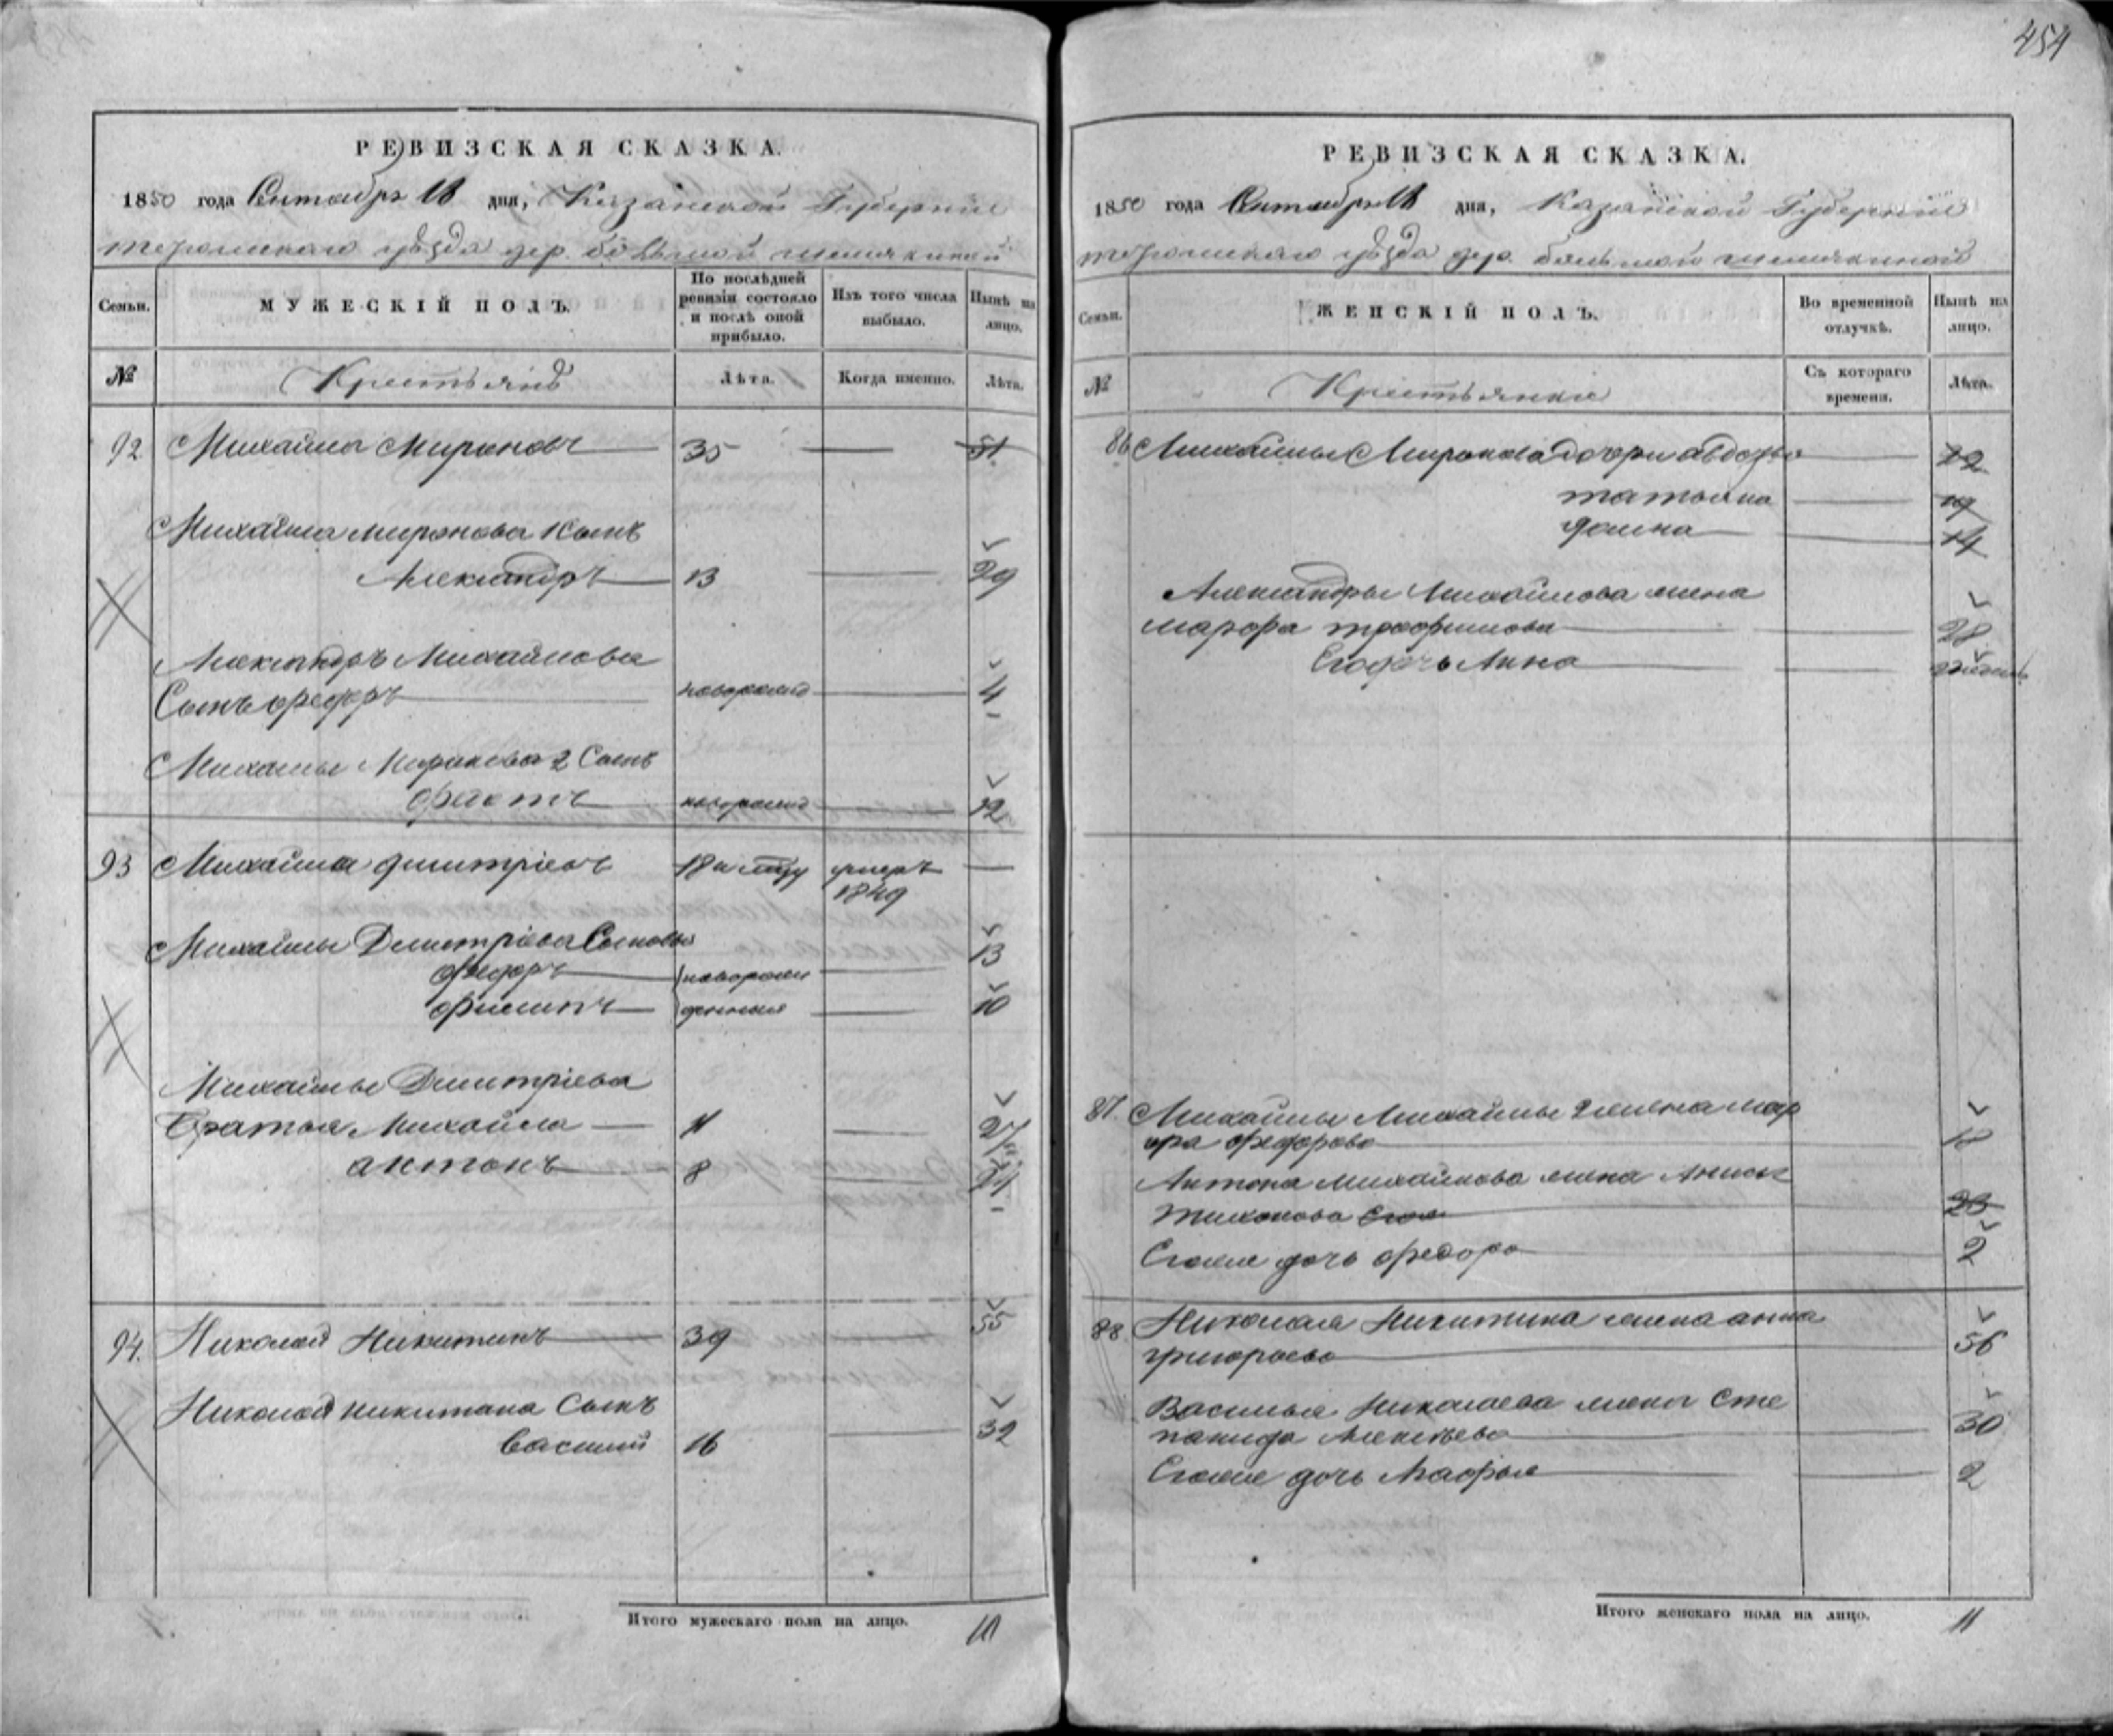 454
РЕВИЗСКАЯ СКАЗКА.
1850 года Сентября 18 дня, Казанской Губернии
уѣзда дер. большой
Семьи.
МУЖЕСКІЙ ПОЛЪ.
По послѣдней ревизіи состояло и послѣ оной прибыло.
Изъ того числа выбыло.
Нынѣ на лицо.
№
Крестьянъ
Лѣта.
Когда именно.
Лѣта.
92 Михайла Мироновъ 35 51
Михайла миронова 1 сынъ
Александръ 13 29
Александръ Михайлова
Сынъ федоръ новорожд 4
Михайлы Миронова 2 Сынъ
новорожд 12
93 Михайла дмитріевъ умеръ
1849
Михайлы Дмитріева Сыновья
федоръ новорож 13
филипъ денныя 10
Михайлы Дмитріева
братья Михайла 11 27
антонъ 8 24
94. Николай Никитинъ 39 55
Николай никитина Сынъ
Василий 16 32
Итого мужескаго пола на лицо. 10
РЕВИЗСКАЯ СКАЗКА.
1850 года Сентября 18 дня, Казанской Губернии
уѣзда дер. большой
Семьи.
ЖЕНСКІЙ ПОЛЪ.
Во временной отлучкѣ.
Нынѣ на лицо.
№
Крестьянки
Съ котораго времени.
Лѣта.
86 Михайлы Миронова дочери авдотья 22
татьяна 19
14
Александры Михайлова жена
марфа трофимова 28
Его дочь Анна
87. Михайлы Михайлы 2 жена мар
фа федорова 18
Антона михайлова жена Анись
тихонова
Его же дочь федора 2
88 Николая Никитина жена анна
григорьева 56
Василья Николаева жена Сте
панида Алексѣева 30
Его же дочь Марфья 2
Итого женскаго пола на лицо. 11